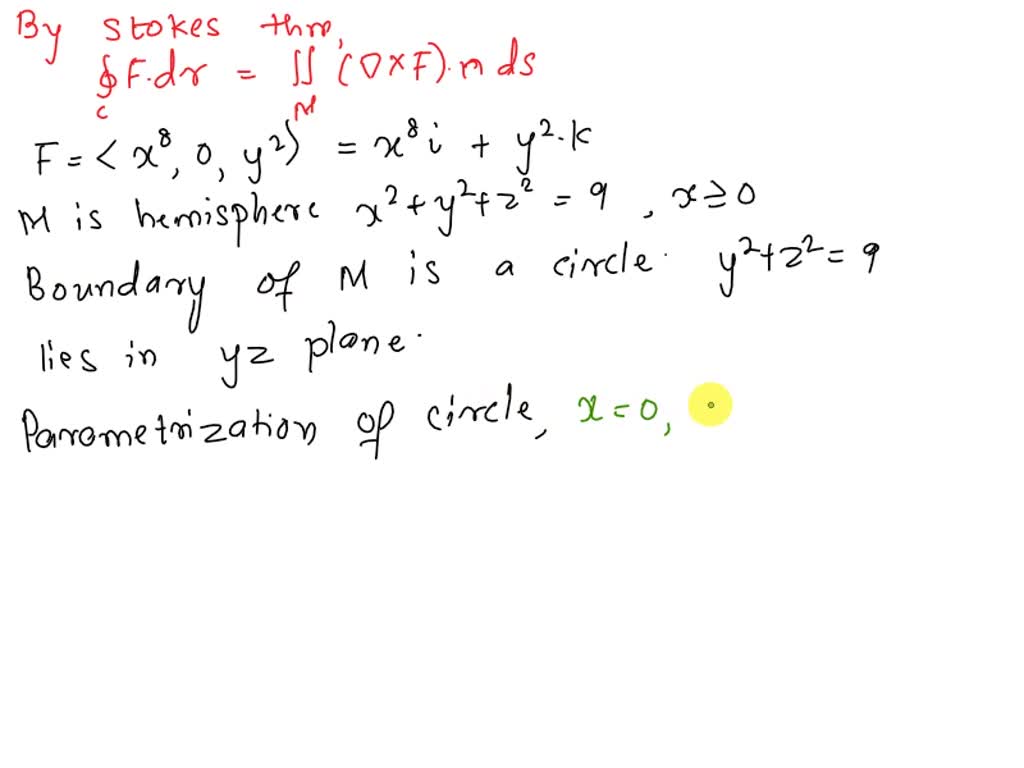 By stokes thm,
∮_C F.dr = ∬_M (∇×F).n ds
F = < x⁸, 0, y²⟩ = x⁸ i + y².k
M is hemisphere x²+y²+z² = 9 , x≥0
Boundary of M is a circle. y²+z² = 9
lies in yz plane.
Parametrization of circle, x=0,